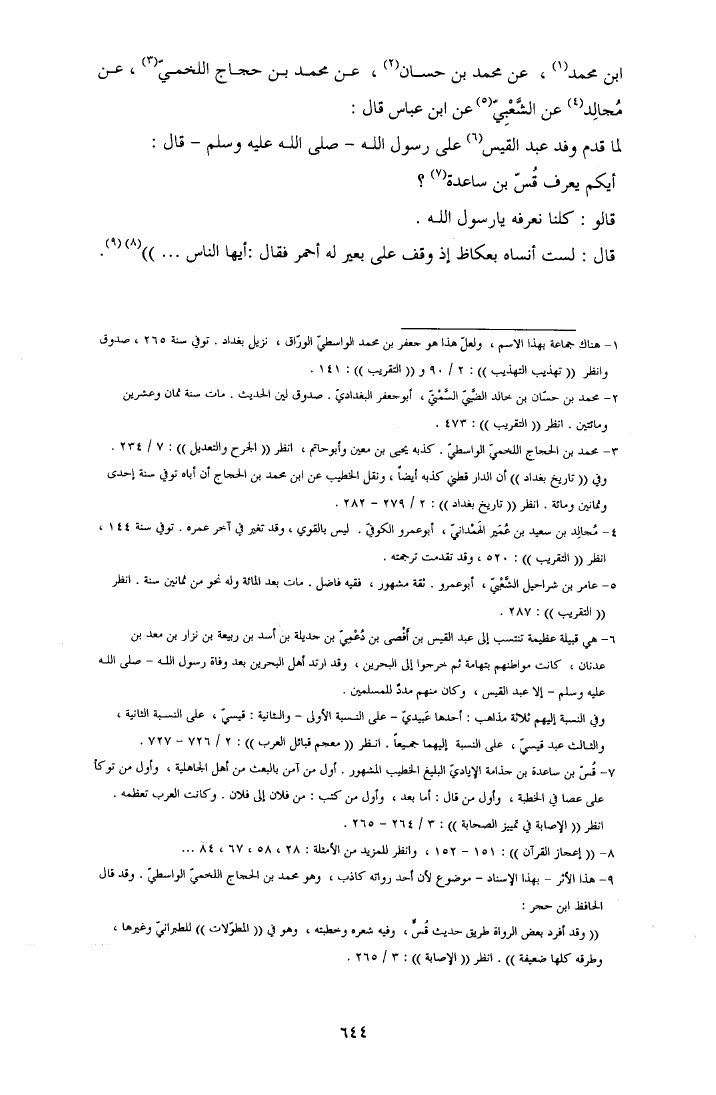 ابن محمد(١) ، عن محمد بن حسان(٢) ، عن محمد بن حجاج اللخميّ(٣) ، عن
مُجالِد(٤) عن الشَّعْبِيّ(٥) عن ابن عباس قال :
لما قدم وفد عبد القيس(٦) على رسول الله – صلى الله عليه وسلم – قال :
أيكم يعرف قُسّ بن ساعدة(٧) ؟
قالو : كلنا نعرفه يارسول الله .
قال : لست أنساه بعكاظ إذ وقف على بعير له أحمر فقال :أيها الناس ... ))(٨)(٩).
١– هناك جماعة بهذا الاسم ، ولعلّ هذا هو جعفر بن محمد الواسطيّ الورّاق ، نزيل بغداد . توفي سنة ٢٦٥ ، صدوق
وانظر (( تهذيب التهذيب )) : ٢ / ٩٠ و (( التقريب )) : ١٤١ .
٢– محمد بن حسّان بن خالد الضَّبّيّ السَّمْتيّ ، أبوجعفر البغداديّ . صدوق لين الحديث . مات سنة ثمان وعشرين
ومائتين . انظر (( التقريب )) : ٤٧٣ .
٣– محمد بن الحجاج اللخميّ الواسطيّ . كذبه يحيى بن معين وأبوحاتم ، انظر (( الجرح والتعديل )) : ٧ / ٢٣٤ .
وفي (( تاريخ بغداد )) أن الدار قطني كذبه أيضاً ، ونقل الخطيب عن ابن محمد بن الحجاج أن أباه توفي سنة إحدى
وثمانين ومائة . انظر (( تاريخ بغداد )) : ٢ / ٢٧٩ – ٢٨٢ .
٤– مُجالِد بن سعيد بن عُمَير الهَمْدانيّ ، أبوعمرو الكوفيّ . ليس بالقوي ، وقد تغير في آخر عمره . توفي سنة ١٤٤ ،
انظر (( التقريب )) : ٥٢٠ ، وقد تقدمت ترجمته .
٥– عامر بن شراحيل الشَّعْبِيّ ، أبوعمرو . ثقة مشهور ، فقيه فاضل . مات بعد المائة وله نحو من ثمانين سنة . انظر
(( التقريب )) : ٢٨٧ .
٦– هي قبيلة عظيمة تنتسب إلى عبد القيس بن أَفْصى بن دُعْمِيّ بن جديلة بن أسد بن ربيعة بن نزار بن معد بن
عدنان ، كانت مواطنهم بتهامة ثم خرجوا إلى البحرين ، وقد ارتد أهل البحرين بعد وفاة رسول الله – صلى الله
عليه وسلم – إلا عبد القيس ، وكان منهم مددٌ للمسلمين .
وفي النسبة إليهم ثلاثة مذاهب : أحدها عَبِيديّ – على النسبة الأولى – والثانية : قيسيّ ، على النسبة الثانية ،
والثالث عبد قيسيّ ، على النسبة إليهما جميعاً . انظر (( معجم قبائل العرب )) : ٢ / ٧٢٦ – ٧٢٧ .
٧– قُسّ بن ساعدة بن حذامة الإياديّ البليغ الخطيب المشهور . أول من آمن بالبعث من أهل الجاهلية ، وأول من توكأ
على عصا في الخطبة ، وأول من قال : أما بعد ، وأول من كتب : من فلان إلى فلان . وكانت العرب تعظمه .
انظر (( الإصابة في تمييز الصحابة )) : ٣ / ٢٦٤ – ٢٦٥ .
٨– (( إعجاز القرآن )) : ١٥١ – ١٥٢ ، وانظر للمزيد من الأمثلة : ٢٨ ، ٥٨ ، ٦٧ ، ٨٤ ...
٩– هذا الأثر – بهذا الإسناد – موضوع لأن أحد رواته كاذب ، وهو محمد بن الحجاج اللخميّ الواسطيّ . وقد قال
الحافظ ابن حجر :
(( وقد أفرد بعض الرواة طريق حديث قُسٍّ ، وفيه شعره وخطبته ، وهو في (( المطوّلات )) للطبرانيّ وغيرها ،
وطرقه كلها ضعيفة )) . انظر (( الإصابة )) : ٣ / ٢٦٥ .
٦٤٤